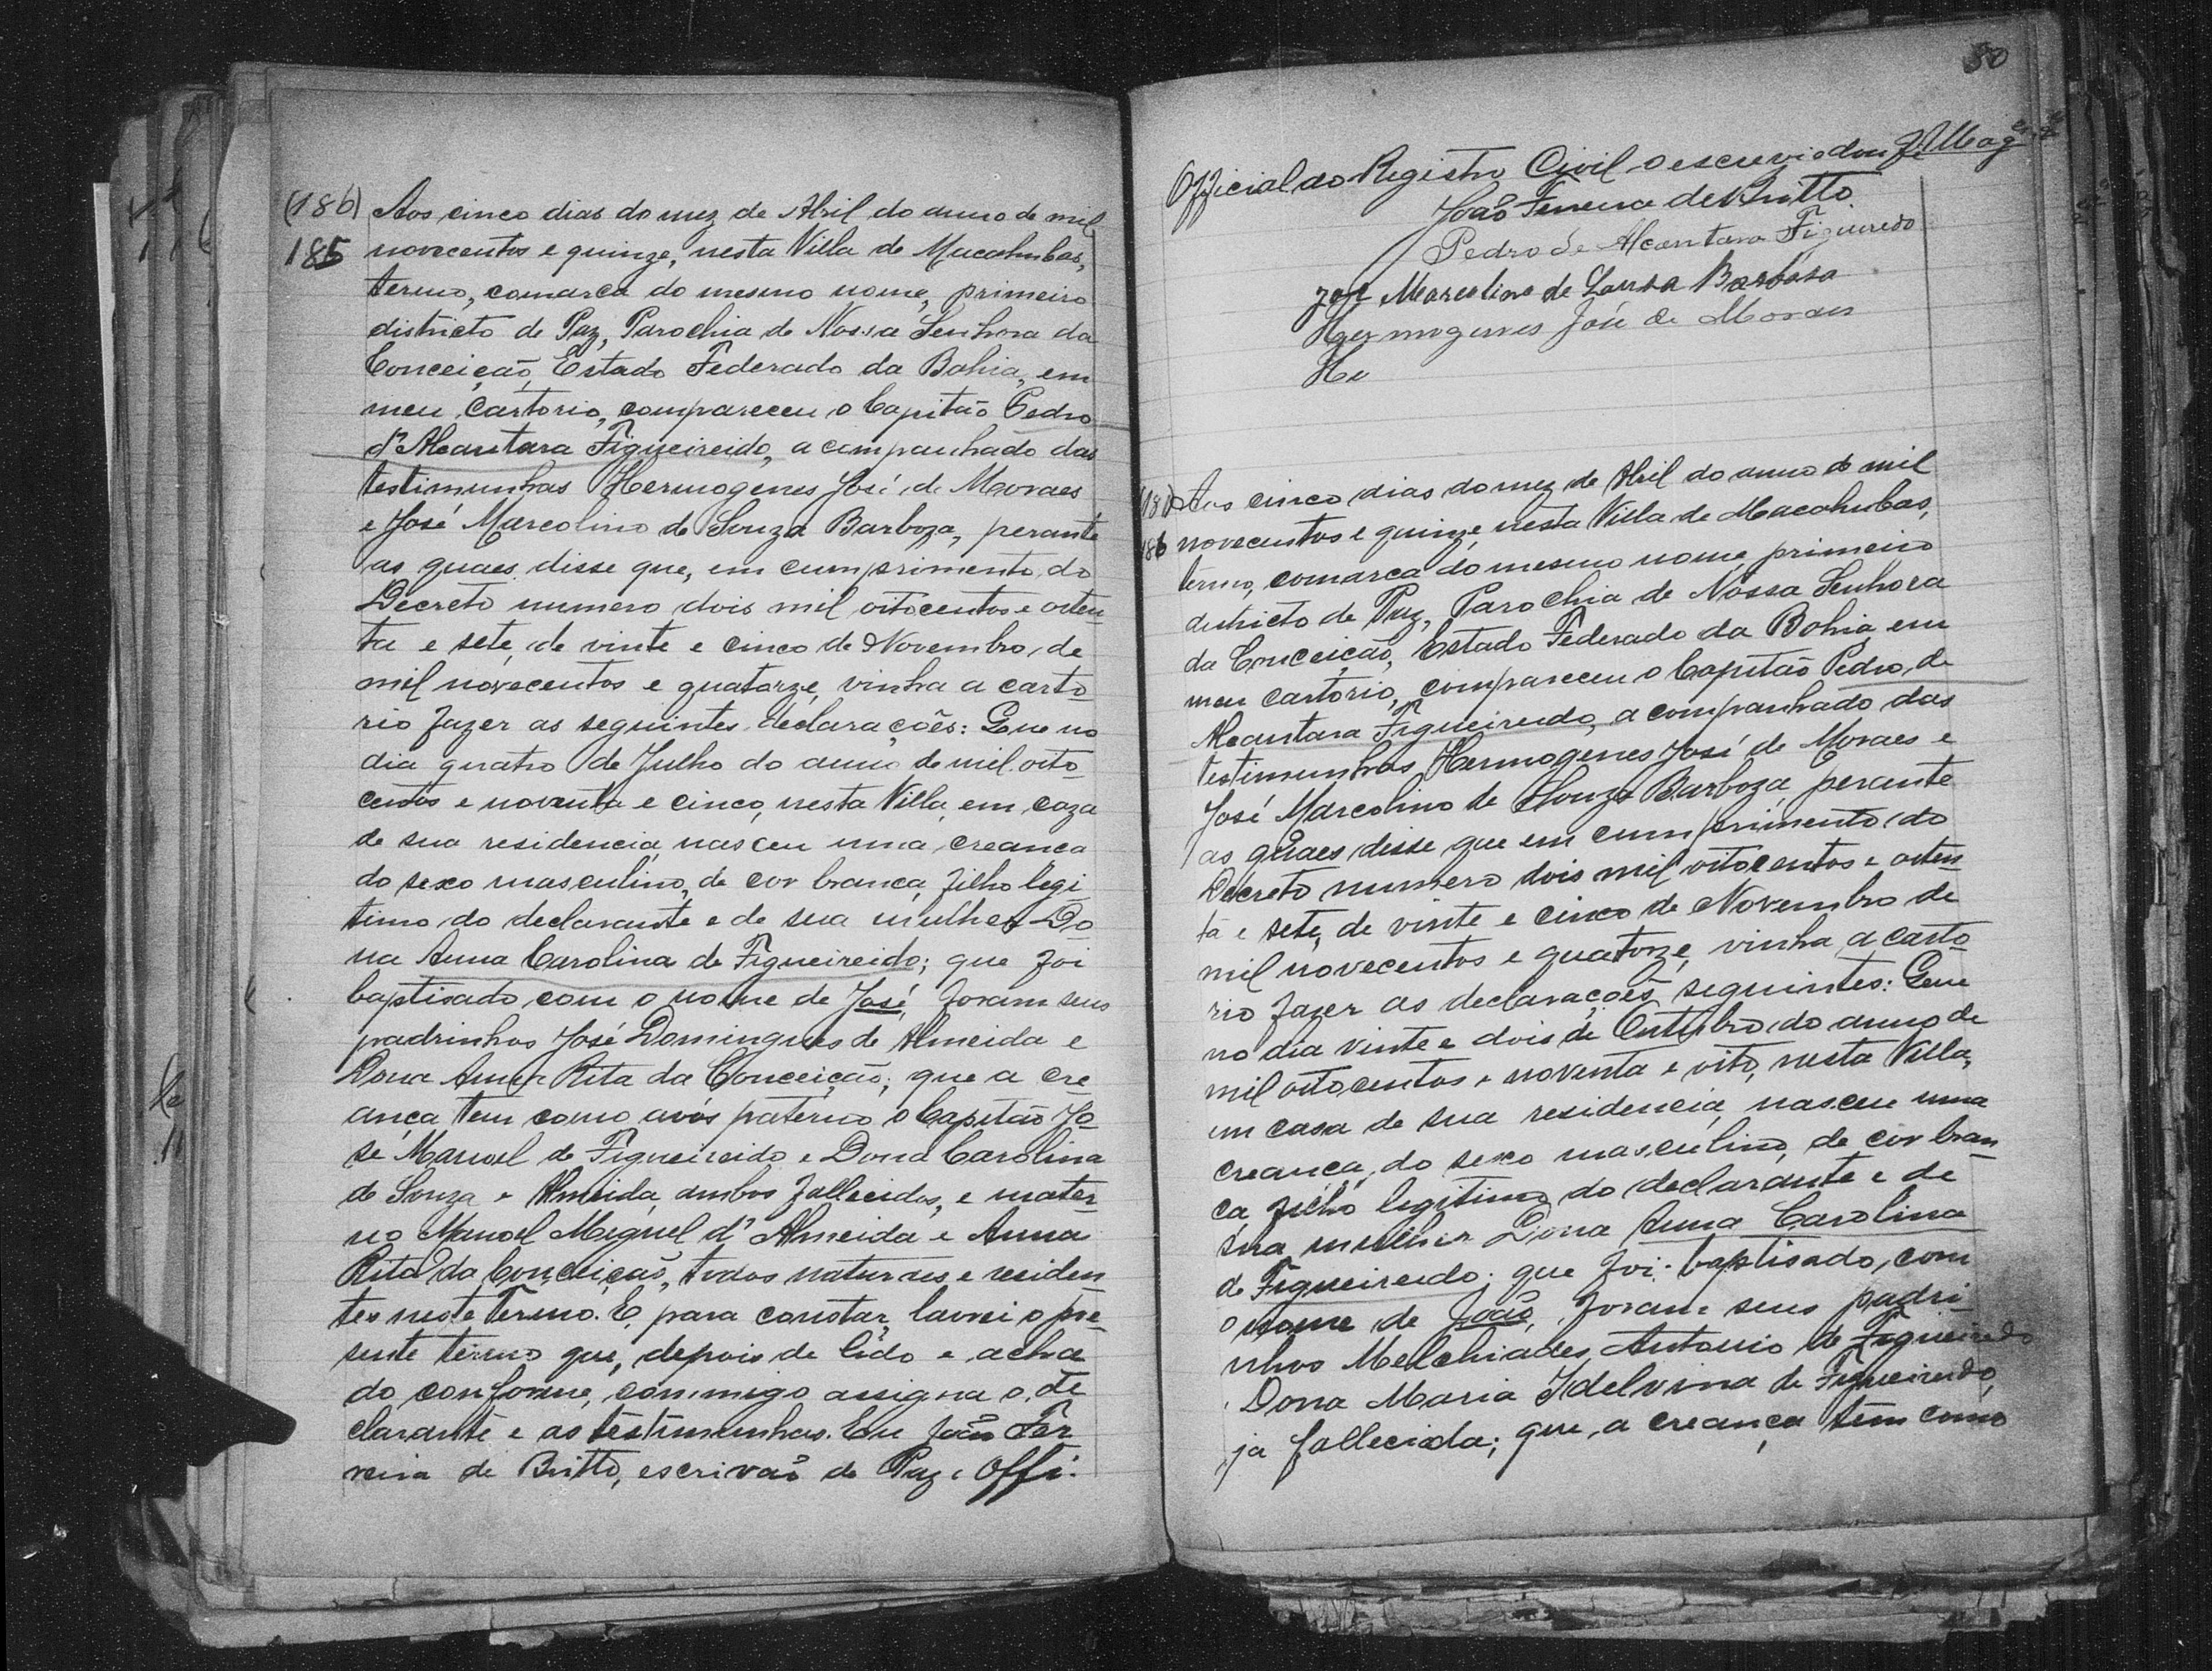 (186) Aos cinco dias do mez de Abril do anno de mil
185 novecentos e quinze, nesta Villa de Macahubas,
termo, comarca do mesmo nome, primeiro
districto de Paz, Parochia de Nossa Senhora da
Conceição, Estado Federado da Bahia, em
meu Cartorio, compareceu o Capitão Pedro
d'Alcantara Figueireido, acompanhado das
testimunhas Hermogenes José de Moraes
e José Marcolino de Souza Barboza, perante
as quaes disse que, em cumprimento do
Decreto numero dois mil oitocentos e oiten
ta e sete, de vinte e cinco de Novembro, de
mil novecentos e quatorze, vinha a carto
rio fazer as seguintes declarações: Que no
dia quatro de Julho do anno de mil oito
centos e noventa e cinco, nesta Villa, em caza
de sua residencia, nasceu uma creanca
do sexo masculino, de cor branca, filho legi
timo do declarante e de sua mulher Do
na Anna Carolina de Figueireido; que foi
baptisado com o nome de José, foram seus
padrinhos José Domingues de Almeida e
Dona Anna Rita da Conceição; que a cre
ança tem como avós paterno o Capitão Jo
sé Manoel de Figueireido e Dona Carolina
de Souza e Almeida, ambos fallecidos, e mater
no Manoel Miguel d'Almeida e Anna
Rita da Conceição, todos naturaes e residen
tes neste Termo. E, para constar, lavrei o pre
sente termo que, depois de lido e acha
do conforme, commigo assigna o de
clarante e as testimunhas. Eu João Fer
reira de Britto, escrivão de Paz e Offi.
80
Official do Registro Civil o escrevi e dou fé
João Ferreira de Britto.
Pedro de Alcantara Figueiredo
José Marcolino de Sousa Barbosa
Hermogenes José de Moraes
He
Aos cinco dias do mez de Abril do anno de mil
186 novecentos e quinze, nesta Villa de Macahubas,
termo, comarca do mesmo nome, primeiro
districto de Paz, Parochia de Nossa Senhora
da Conceição, Estado Federado da Bahia, em
meu cartorio, compareceu o Capitão Pedro de
Alcantara Figueiredo, acompanhado das
testimunhas Hermogenes José de Moraes e
José Marcolino de Souza Barboza, perante
as quaes disse que em cumprimento do
Decreto numero dois mil oitocentos e oiten
ta e sete, de vinte e cinco de Novembro de
mil novecentos e quatorze, vinha a carto
rio fazer as declarações seguintes: Que
no dia vinte e dois de Outubro do anno de
mil oitocentos e noventa e oito, nesta Villa,
em casa de sua residencia, nasceu uma
creança, do sexo masculino, de cor bran
ca, filho legitimo do declarante e de
sua mulher Dona Anna Carolina
de Figueiredo; que foi baptisado, com
o nome de João, foram seus padri
nhos Melchiades Antonio de Figueiredo
Dona Maria Idelvina de Figueiredo,
ja fallecida; que, a creança tem como